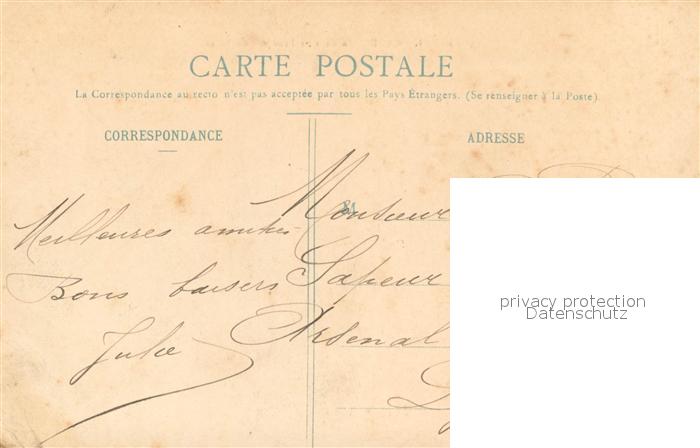 CARTE POSTALE
La Correspondance au recto n'est pas acceptée par tous les Pays Étrangers. (Se renseigner à la Poste)
CORRESPONDANCE
ADRESSE
Meilleures amitiés
Bons baisers
Julie
M
Monsieur
Sapeur
Arsenal
privacy protection
Datenschutz